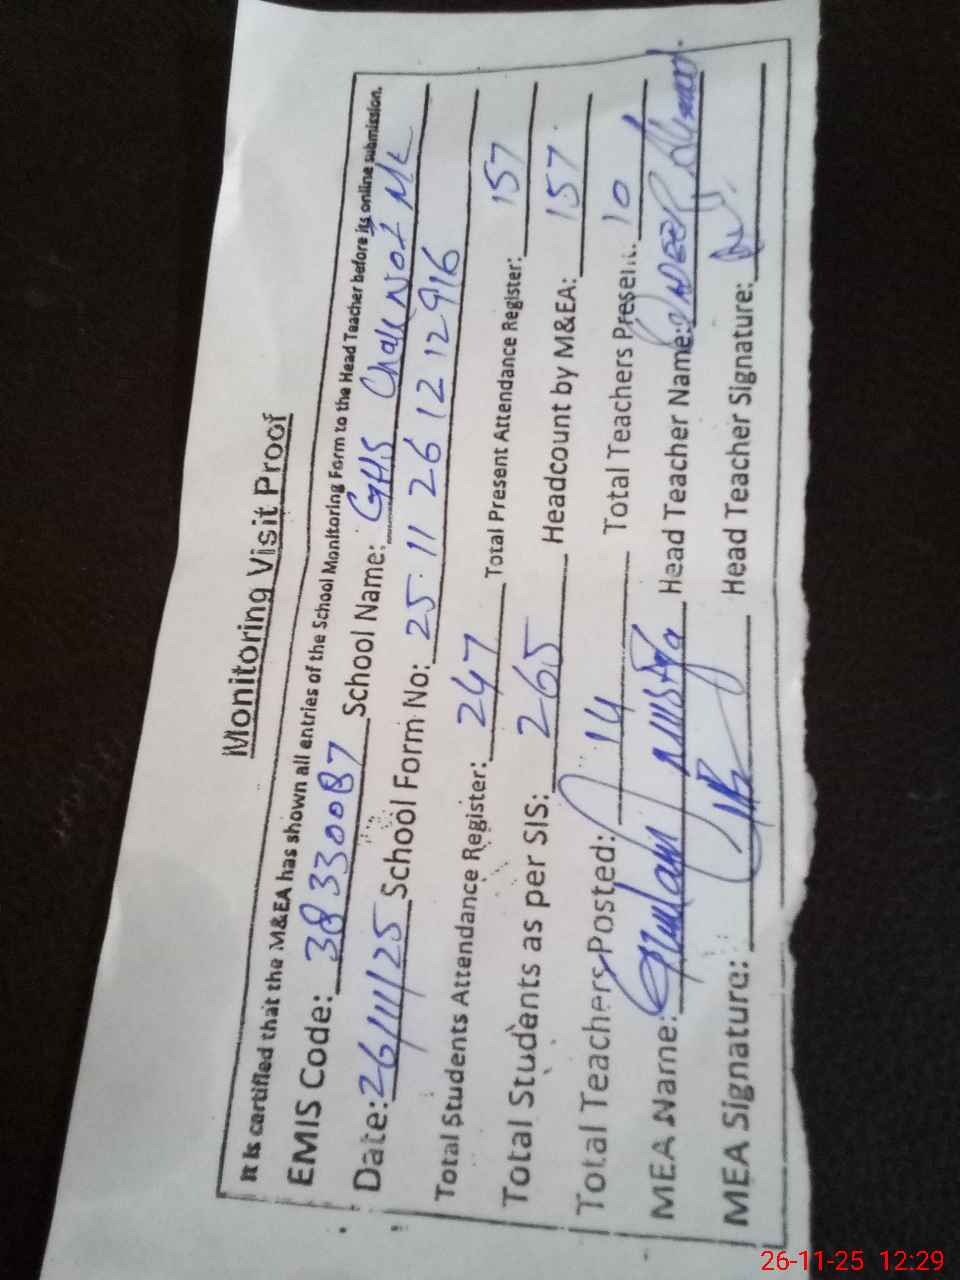 Monitoring Visit Proof
It is certified that the M&EA has shown all entries of the School Monitoring Form to the Head Teacher before its online submission.
EMIS Code: 38330087 School Name: GHS Chak No.1 ML
Date: 26/11/25 School Form No: 25.11 26 12 12916
Total Students Attendance Register: 247 Total Present Attendance Register: 157
Total Students as per SIS: 265 Headcount by M&EA: 157
Total Teachers Posted: 14 Total Teachers Present: 10
MEA Name: Ghulam Mustafa Head Teacher Name:
MEA Signature: Head Teacher Signature:
26-11-25 12:29